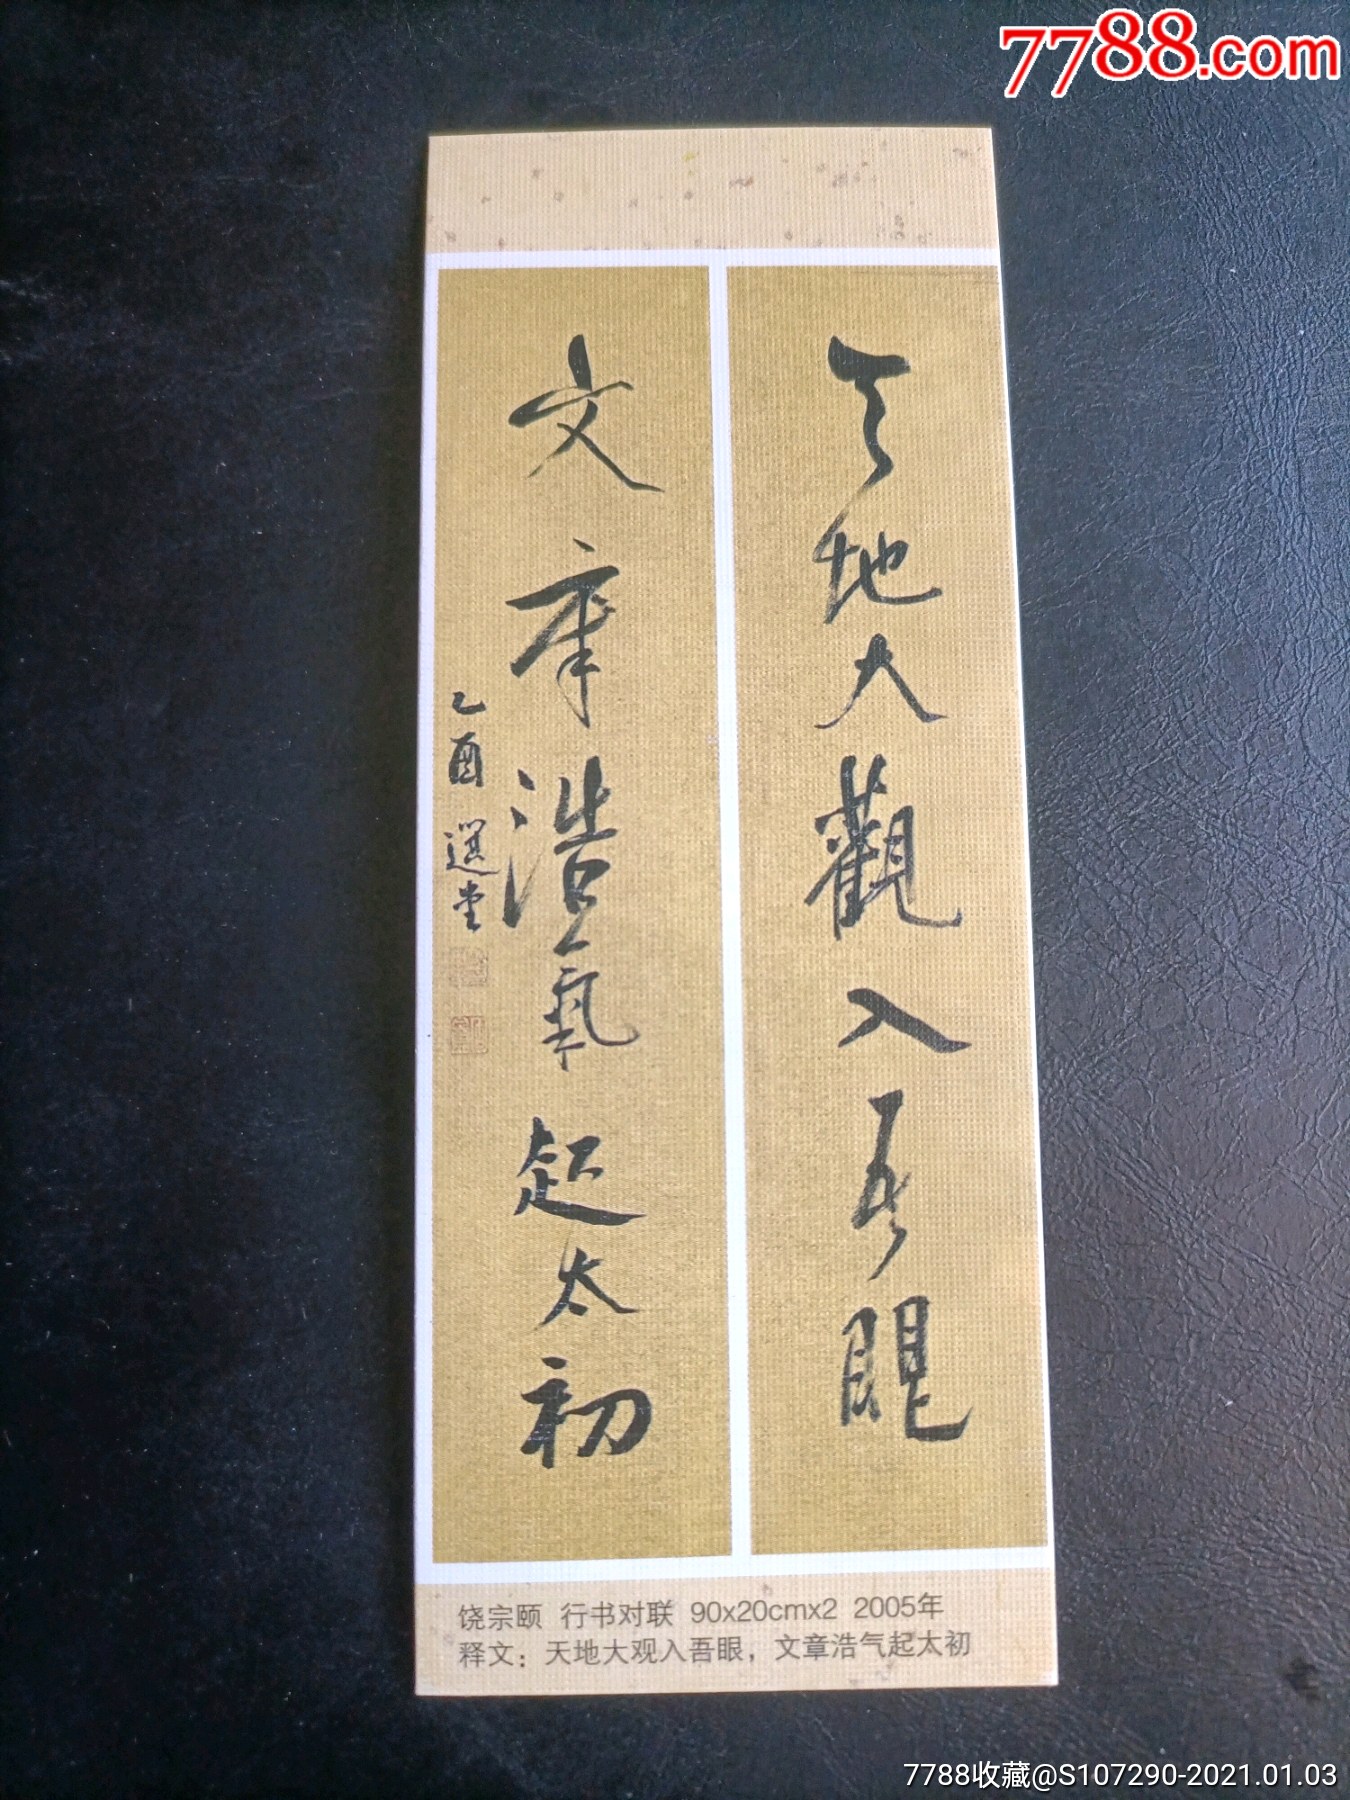 7788.com
天地大觀入吾眼
文章浩氣起太初
乙酉 選堂
饶宗颐 行书对联 90x20cmx2 2005年
释文：天地大观入吾眼，文章浩气起太初
7788收藏@S107290-2021.01.03